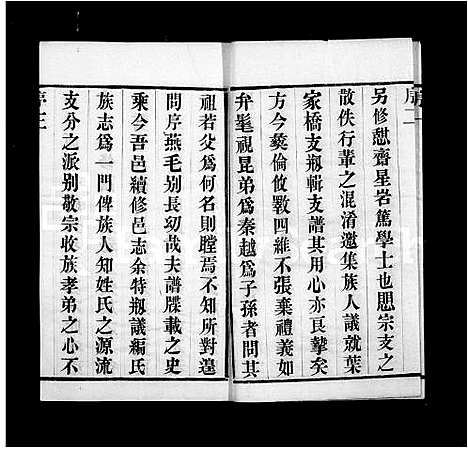 序二
另修憇齋星岩篤學士也思宗支之
散佚行輩之混淆邀集族人議就葉
家橋支剏輯支譜其用心亦良摯矣
方今彛倫攸斁四維不張棄禮義如
弁髦視昆弟爲秦越爲子孫者問其
祖若父爲何名則瞠焉不知所對遑
問序燕毛别長幼哉夫譜牒載之史
乘今吾邑續修邑志余特剏議編氏
族志爲一門俾族人知姓氏之源流
支分之派别敬宗收族孝弟之心不
序三